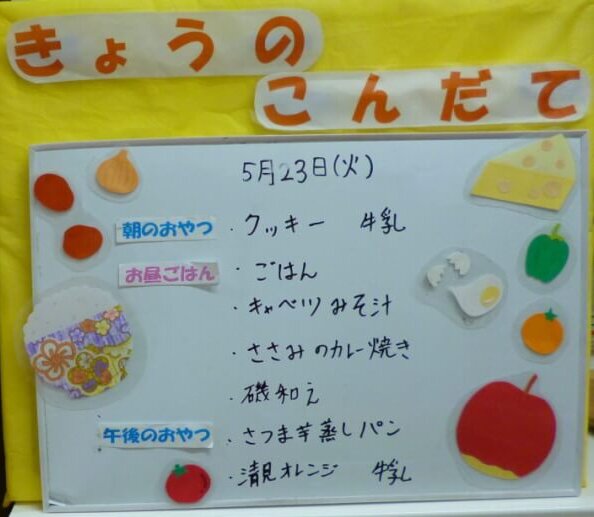 きょうの
こんだて
5月23日(火)
朝のおやつ ・クッキー 牛乳
お昼ごはん ・ごはん
・キャベツみそ汁
・ささみのカレー焼き
・磯和え
午後のおやつ ・さつま芋蒸しパン
・清見オレンジ 牛乳